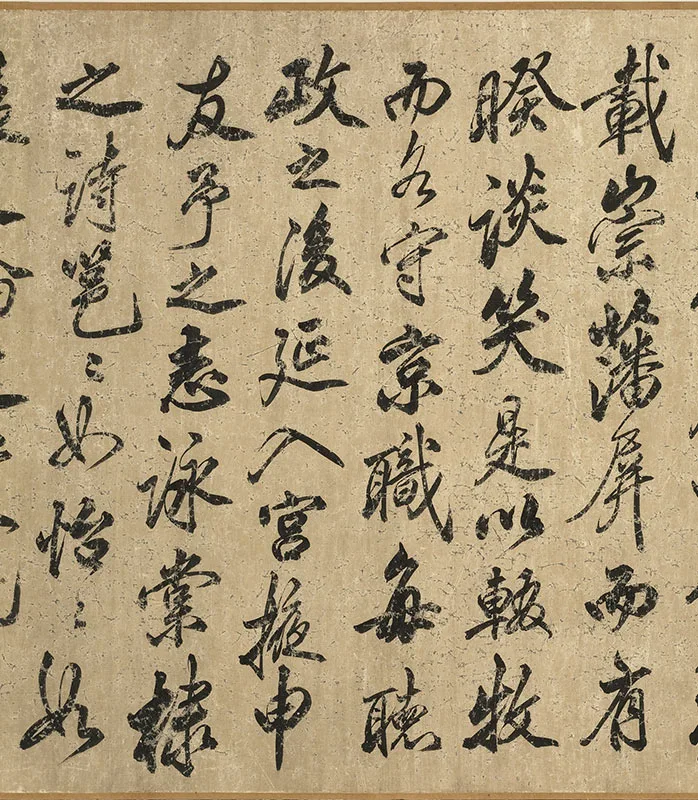 載崇藩屏而有
睽談笑是以輟牧
而各守京職每聽
政之後延入宮掖申
友于之志詠棠棣
之詩邕〻如怡〻如